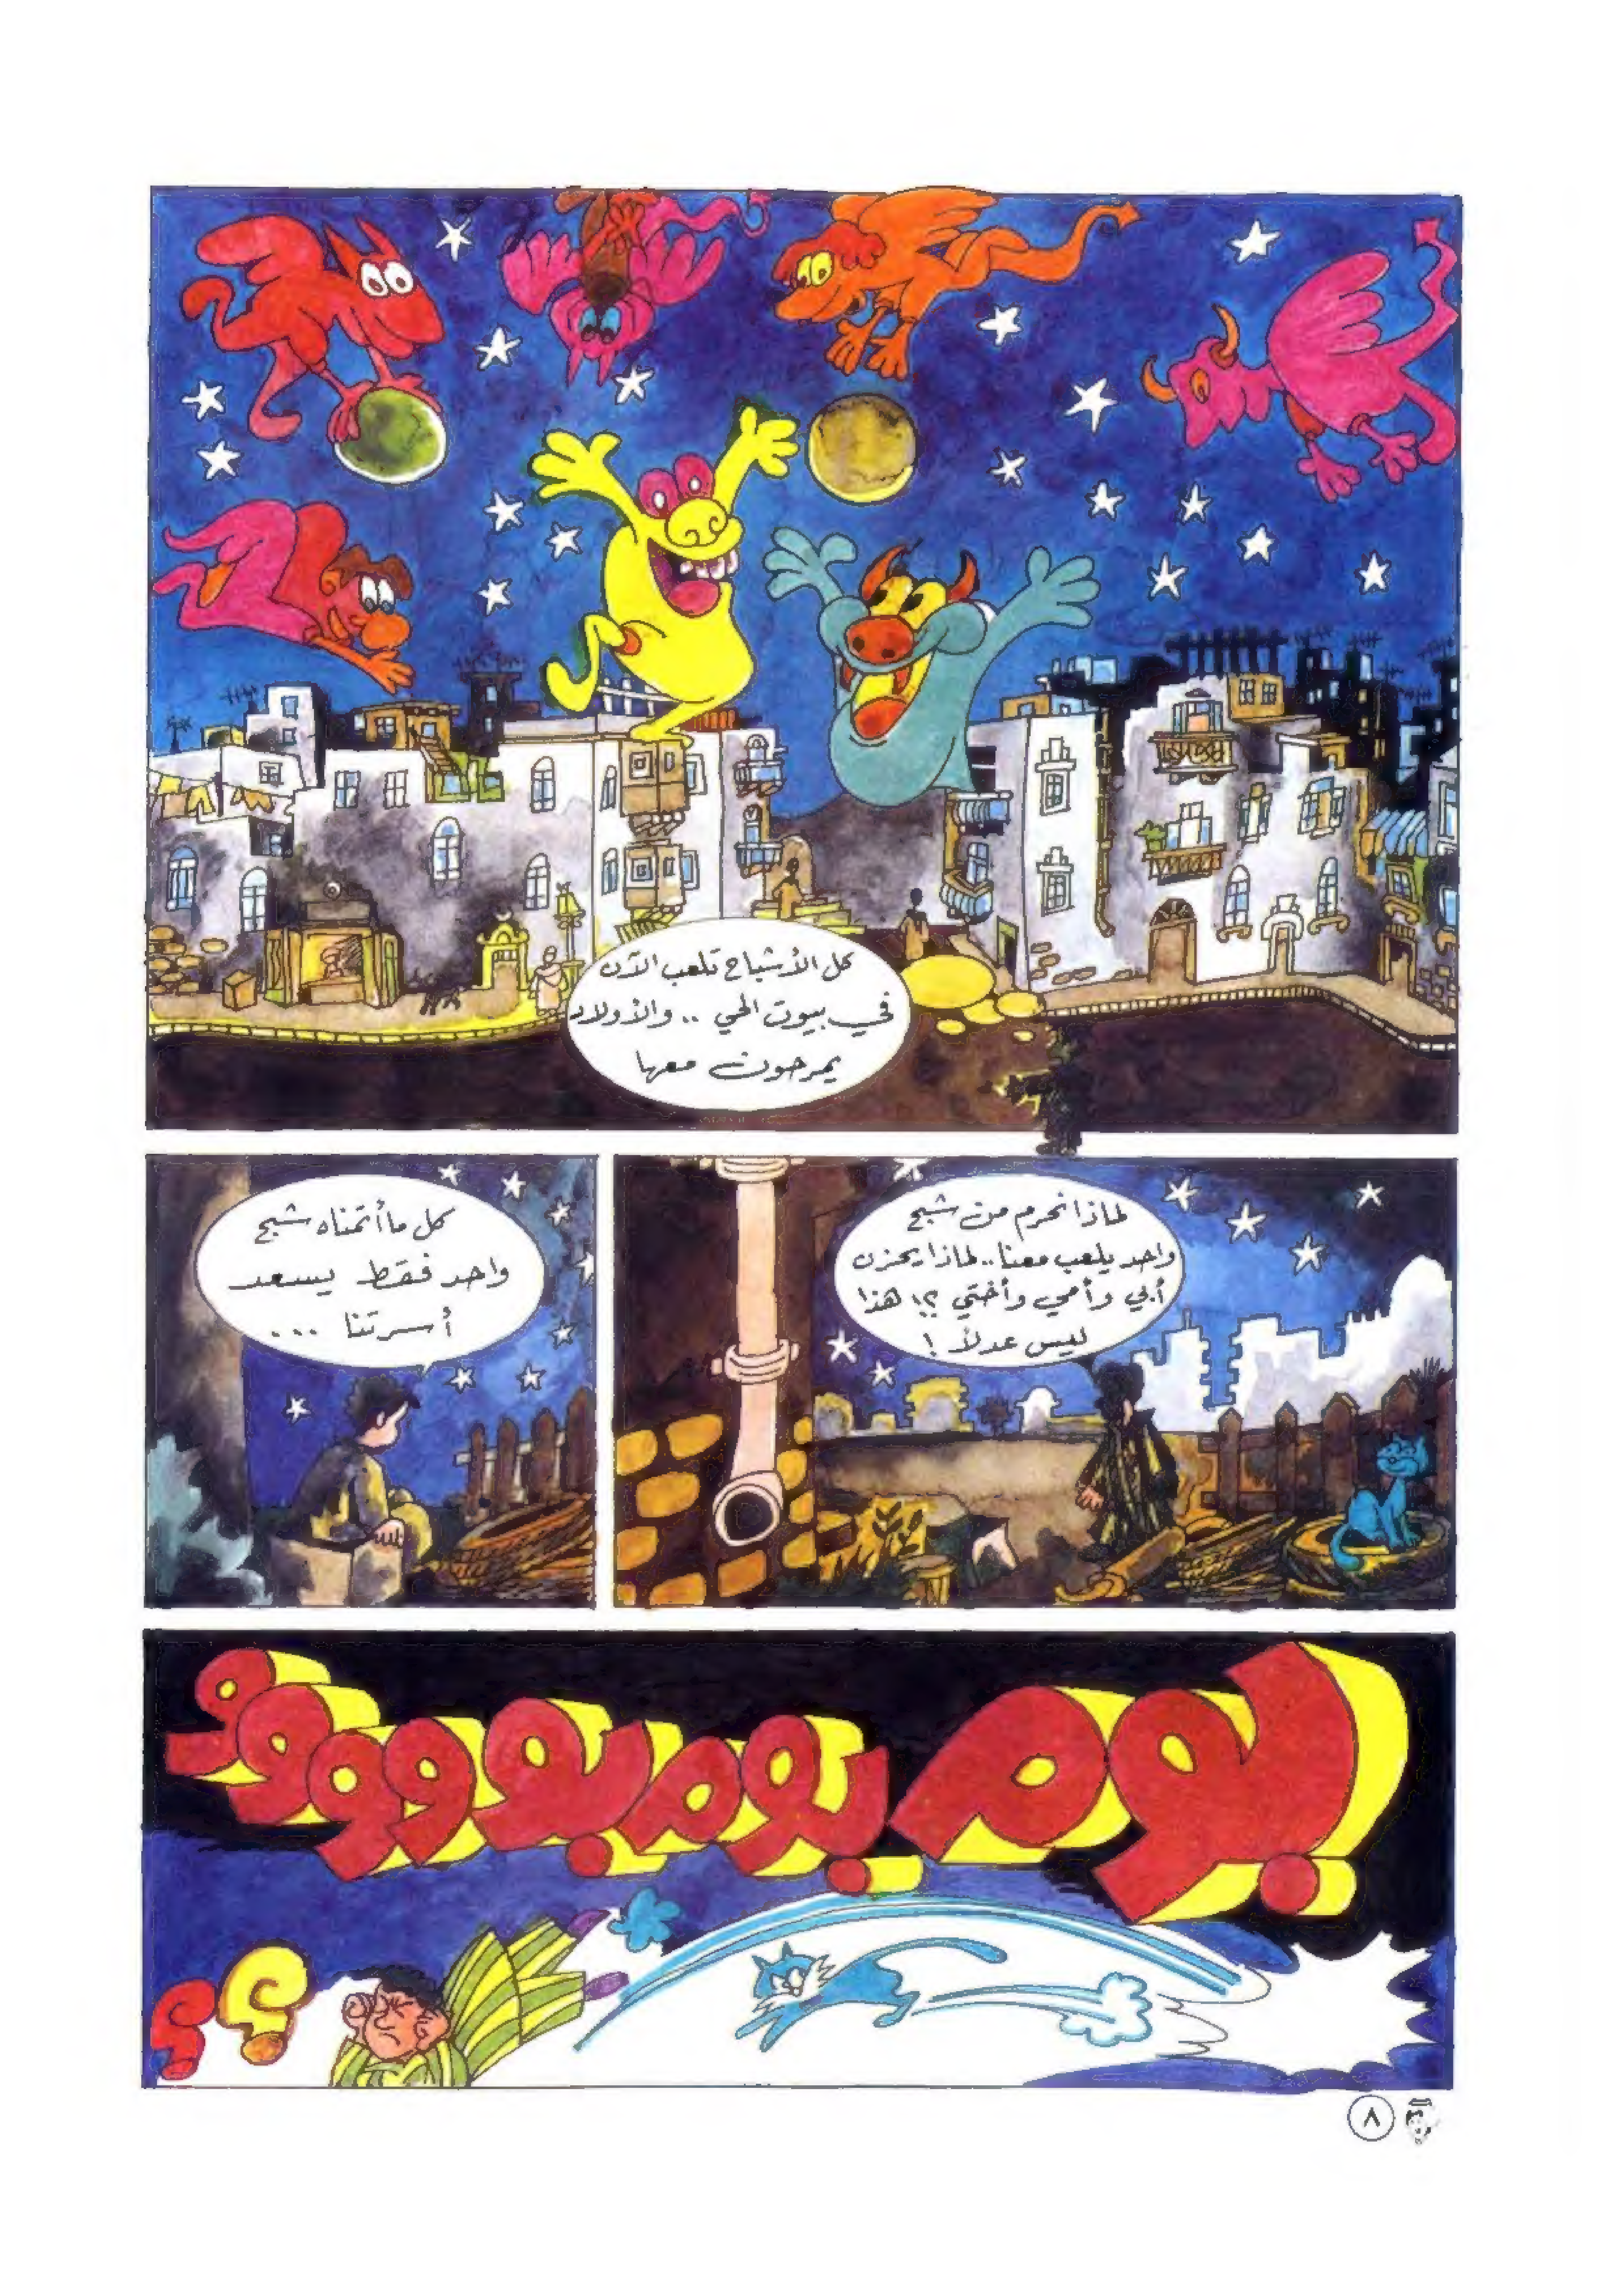 كل الأشباح تلعب الآن
في بيوت الحي .. والأولاد
يمرحون معها
لماذا نحرم من شبح
واحد يلعب معنا .. لماذا يحزن
أبي وأمي وأختي ؟! هذا
ليس عدلاً !
كل ما أتمناه شبح
واحد فقط يسعد
أسرتنا ...
بوم بوم بوووووو
؟ ؟
٨